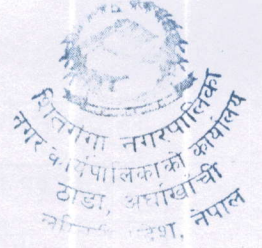 शितगंगा नगरपालिका
नगर कार्यपालिकाको कार्यालय
ठाडा, अर्घाखाँची
नेपाल